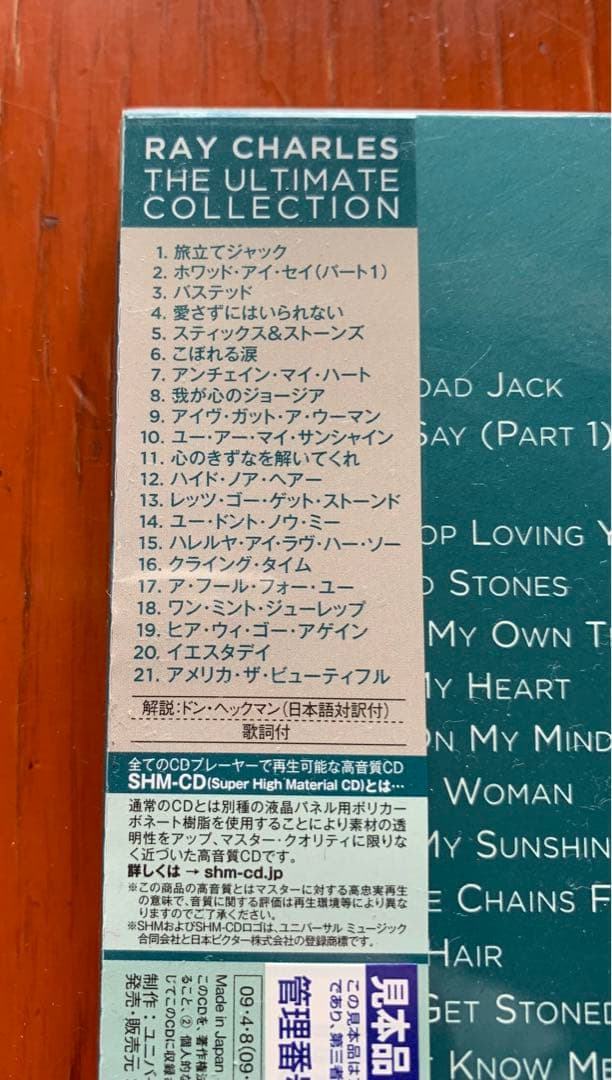 RAY CHARLES
THE ULTIMATE
COLLECTION
1. 旅立てジャック
2. ホワッド・アイ・セイ(パート1)
3. バステッド
4. 愛さずにはいられない
5. スティックス&ストーンズ
6. こぼれる涙
7. アンチェイン・マイ・ハート
8. 我が心のジョージア
9. アイヴ・ガット・ア・ウーマン
10. ユー・アー・マイ・サンシャイン
11. 心のきずなを解いてくれ
12. ハイド・ノア・ヘアー
13. レッツ・ゴー・ゲット・ストーンド
14. ユー・ドント・ノウ・ミー
15. ハレルヤ・アイ・ラヴ・ハー・ソー
16. クライング・タイム
17. ア・フール・フォー・ユー
18. ワン・ミント・ジューレップ
19. ヒア・ウィ・ゴー・アゲイン
20. イエスタデイ
21. アメリカ・ザ・ビューティフル
解説:ドン・ヘックマン(日本語対訳付)
歌詞付
全てのCDプレーヤーで再生可能な高音質CD
SHM-CD(Super High Material CD)とは…
通常のCDとは別種の液晶パネル用ポリカー
ボネート樹脂を使用することにより素材の透
明性をアップ、マスター・クオリティに限りな
く近づいた高音質CDです。
詳しくは → shm-cd.jp
※この商品の高音質とはマスターに対する高忠実再生
の意味で、音質に関する評価は再生環境等により異な
りますのでご了承ください。
※SHMおよびSHM-CDロゴは、ユニバーサル ミュージック
合同会社と日本ビクター株式会社の登録商標です。
見本品
この見本品は
であり、第三者
管理番
09・4・8(09・
Made in Japan
このCDを、著作権法
ること、② 個人的な
じてこのCDに収録さ
制作:ユニバ
発売・販売元:
OAD JACK
SAY (PART 1)
OP LOVING Y
D STONES
MY OWN T
MY HEART
ON MY MIND
WOMAN
MY SUNSHIN
E CHAINS F
HAIR
GET STONED
KNOW ME